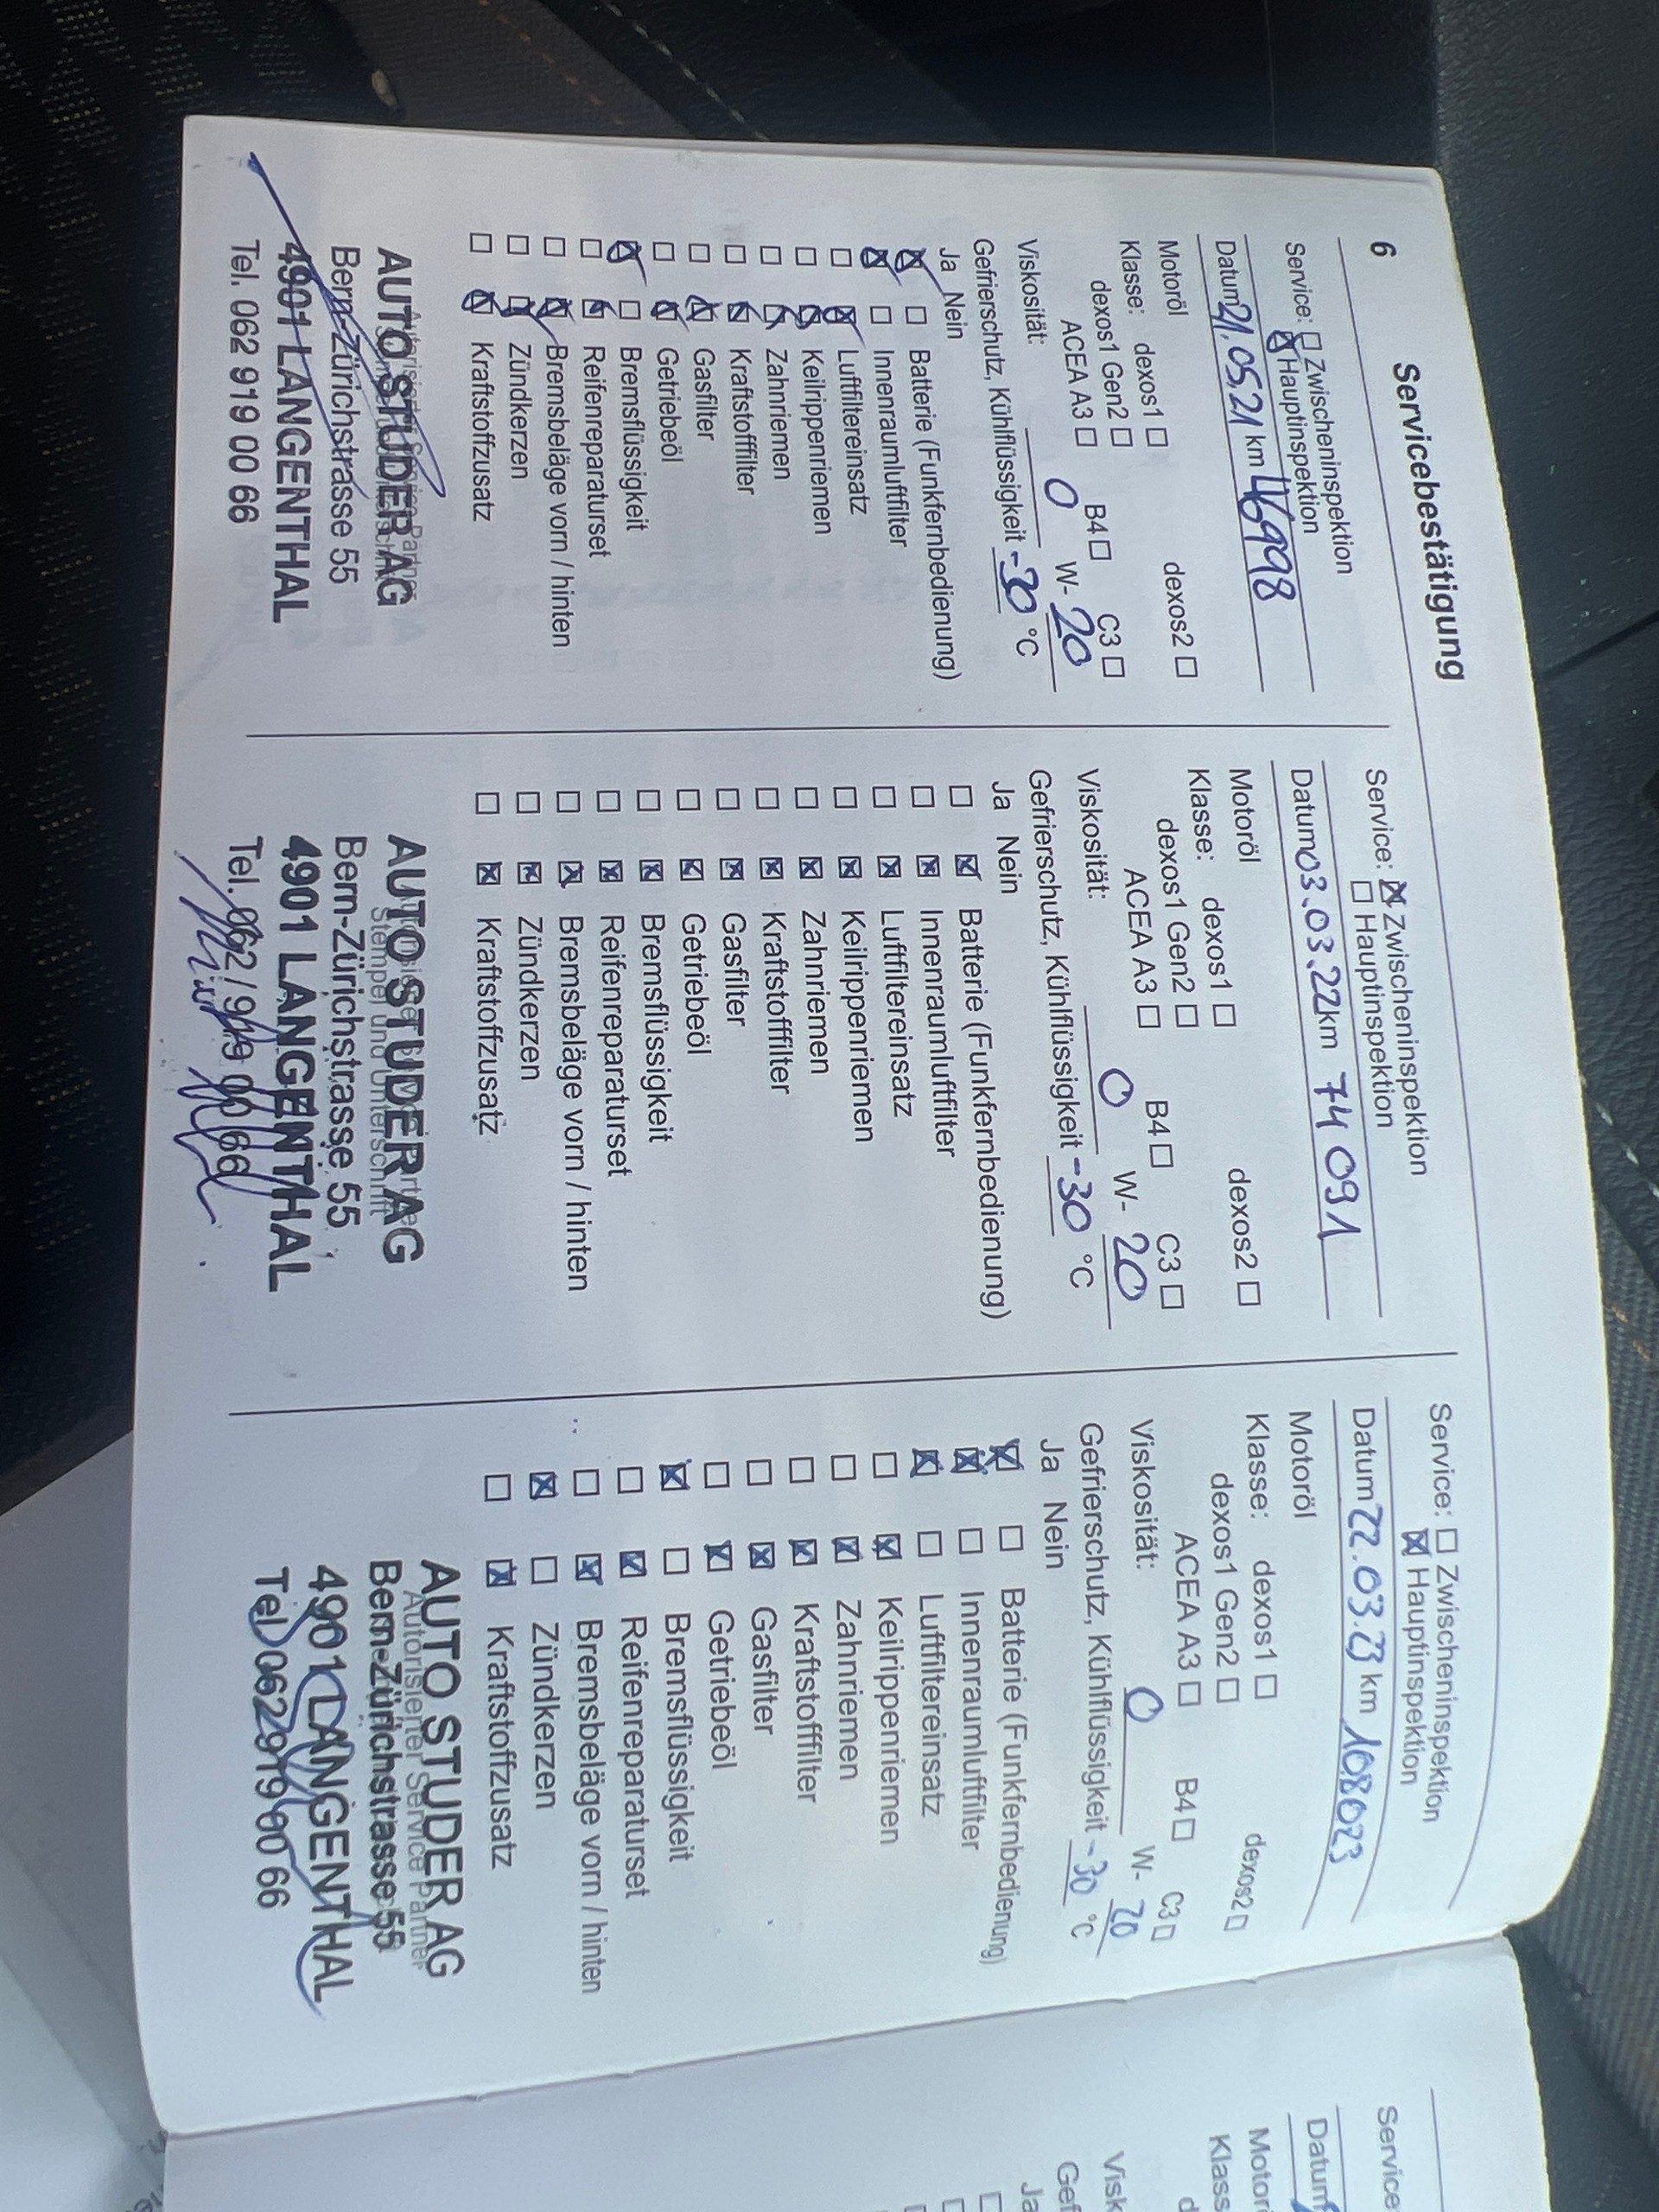 6
Servicebestätigung
Service: ☐ Zwischeninspektion
☒ Hauptinspektion
Datum 21.05.21 km 46998
Motoröl
Klasse: dexos1 ☐ dexos2 ☐
dexos1 Gen2 ☐
ACEA A3 ☐ B4 ☐ C3 ☐
Viskosität: 0 W- 20
Gefrierschutz, Kühlflüssigkeit -30 °C
Ja Nein
☒ ☐ Batterie (Funkfernbedienung)
☒ ☐ Innenraumluftfilter
☐ ☒ Luftfiltereinsatz
☐ ☒ Keilrippenriemen
☐ ☒ Zahnriemen
☐ ☒ Kraftstofffilter
☐ ☒ Gasfilter
☐ ☒ Getriebeöl
☒ ☐ Bremsflüssigkeit
☐ ☒ Reifenreparaturset
☐ ☒ Bremsbeläge vorn / hinten
☐ ☒ Zündkerzen
☐ ☒ Kraftstoffzusatz
AUTO STUDER AG
Bern-Zürichstrasse 55
4901 LANGENTHAL
Tel. 062 919 00 66
Service: ☒ Zwischeninspektion
☐ Hauptinspektion
Datum 03.03.22 km 74 091
Motoröl
Klasse: dexos1 ☐ dexos2 ☐
dexos1 Gen2 ☐
ACEA A3 ☐ B4 ☐ C3 ☐
Viskosität: 0 W- 20
Gefrierschutz, Kühlflüssigkeit -30 °C
Ja Nein
☐ ☒ Batterie (Funkfernbedienung)
☐ ☒ Innenraumluftfilter
☐ ☒ Luftfiltereinsatz
☐ ☒ Keilrippenriemen
☐ ☒ Zahnriemen
☐ ☒ Kraftstofffilter
☐ ☒ Gasfilter
☐ ☒ Getriebeöl
☐ ☒ Bremsflüssigkeit
☐ ☒ Reifenreparaturset
☐ ☒ Bremsbeläge vorn / hinten
☐ ☒ Zündkerzen
☐ ☒ Kraftstoffzusatz
AUTO STUDER AG
Stempel und Unterschrift
Bern-Zürichstrasse 55
4901 LANGENTHAL
Tel. 062 / 919 00 66
Service: ☐ Zwischeninspektion
☒ Hauptinspektion
Datum 22.03.23 km 108023
Motoröl
Klasse: dexos1 ☐ dexos2 ☐
dexos1 Gen2 ☐
ACEA A3 ☐ B4 ☐ C3 ☐
Viskosität: 0 W- 20
Gefrierschutz, Kühlflüssigkeit -30 °C
Ja Nein
☒ ☐ Batterie (Funkfernbedienung)
☒ ☐ Innenraumluftfilter
☒ ☐ Luftfiltereinsatz
☐ ☒ Keilrippenriemen
☐ ☒ Zahnriemen
☐ ☒ Kraftstofffilter
☐ ☒ Gasfilter
☐ ☒ Getriebeöl
☒ ☐ Bremsflüssigkeit
☐ ☒ Reifenreparaturset
☐ ☒ Bremsbeläge vorn / hinten
☒ ☐ Zündkerzen
☐ ☒ Kraftstoffzusatz
AUTO STUDER AG
Autorisierter Service Partner
Bern-Zürichstrasse 55
4901 LANGENTHAL
Tel. 062 919 00 66
Service
Datum
Ja